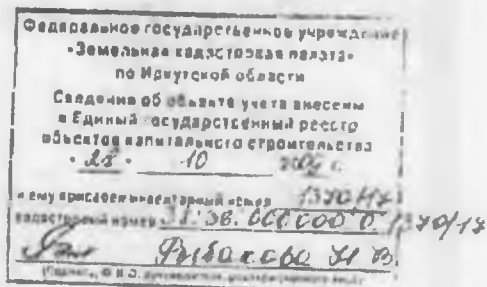 Федеральное государственное учреждение
«Земельная кадастровая палата»
по Иркутской области
Сведения об объекте учета внесены
в Единый государственный реестр
объектов капитального строительства
«28» 10 г.
и ему присвоен инвентарный номер 1370/17
кадастровый номер 38:36:000000:0:1370/17
Рыбакова Н В.
(подпись, Ф.И.О.